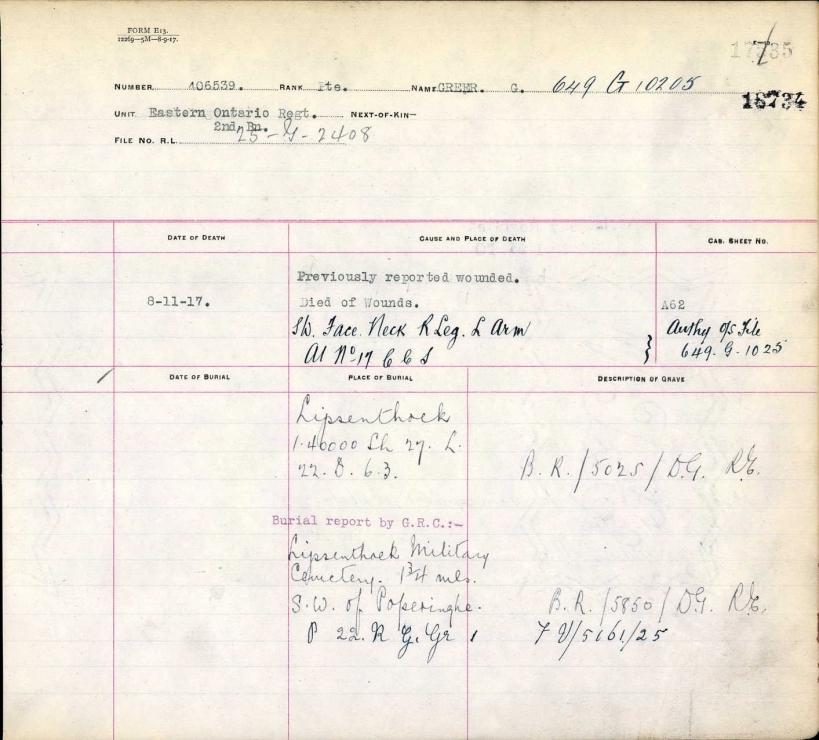 FORM E13.
12269—5M—8-9-17.
17735
NUMBER 406539. RANK Pte. NAME GREER. G. 649 G 10205
18734
UNIT Eastern Ontario Regt. NEXT-OF-KIN—
2nd. Bn.
FILE No. R.L. 25-G-2408
DATE OF DEATH CAUSE AND PLACE OF DEATH CAB. SHEET No.
Previously reported wounded.
8-11-17. Died of Wounds. A62
SW. Face. Neck R Leg. L Arm Authy O/S File
At No 17 C C S } 649. G. 1025
DATE OF BURIAL PLACE OF BURIAL DESCRIPTION OF GRAVE
Lipsenthoek
1.40000 Sh 27. L.
22. D. 6.3. B. R./5025/D.G. R.E.
Burial report by G.R.C.:-
Lijssenthoek Military
Cemetery. 1¾ mls.
S.W. of Poperinghe. B.R./5850/D.G. R.E.
P 22. R G. Gr 1 7 V/5161/25